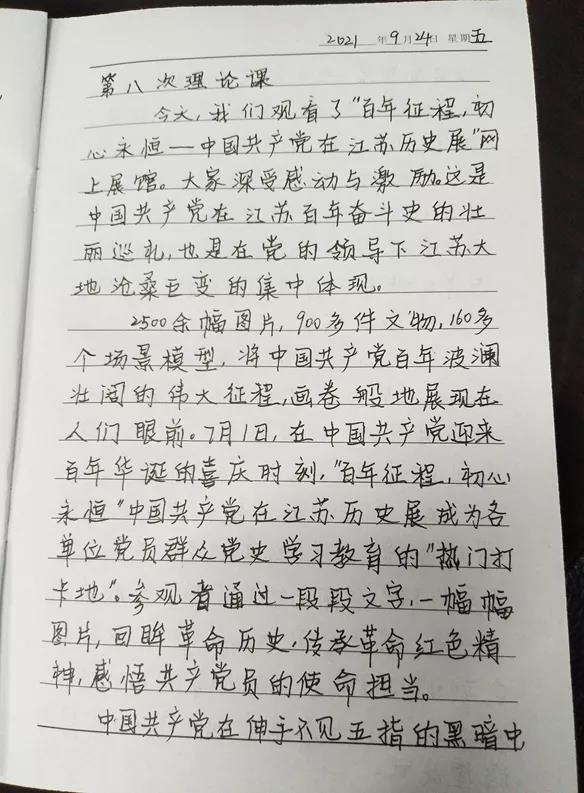 2021 年 9 月 24 日 星期 五
第八次理论课
今天，我们观看了"百年征程，初
心永恒—中国共产党在江苏历史展"网
上展馆。大家深受感动与激励。这是
中国共产党在江苏百年奋斗史的壮
丽巡礼，也是在党的领导下江苏大
地沧桑巨变的集中体现。
2500余幅图片，900多件文物，160多
个场景模型，将中国共产党百年波澜
壮阔的伟大征程，画卷般地展现在
人们眼前。7月1日，在中国共产党迎来
百年华诞的喜庆时刻，"百年征程，初心
永恒"中国共产党在江苏历史展成为各
单位党员群众党史学习教育的"热门打
卡地"。参观者通过一段段文字，一幅幅
图片，回眸革命历史，传承革命红色精
神，感悟共产党员的使命担当。
中国共产党在伸手不见五指的黑暗中